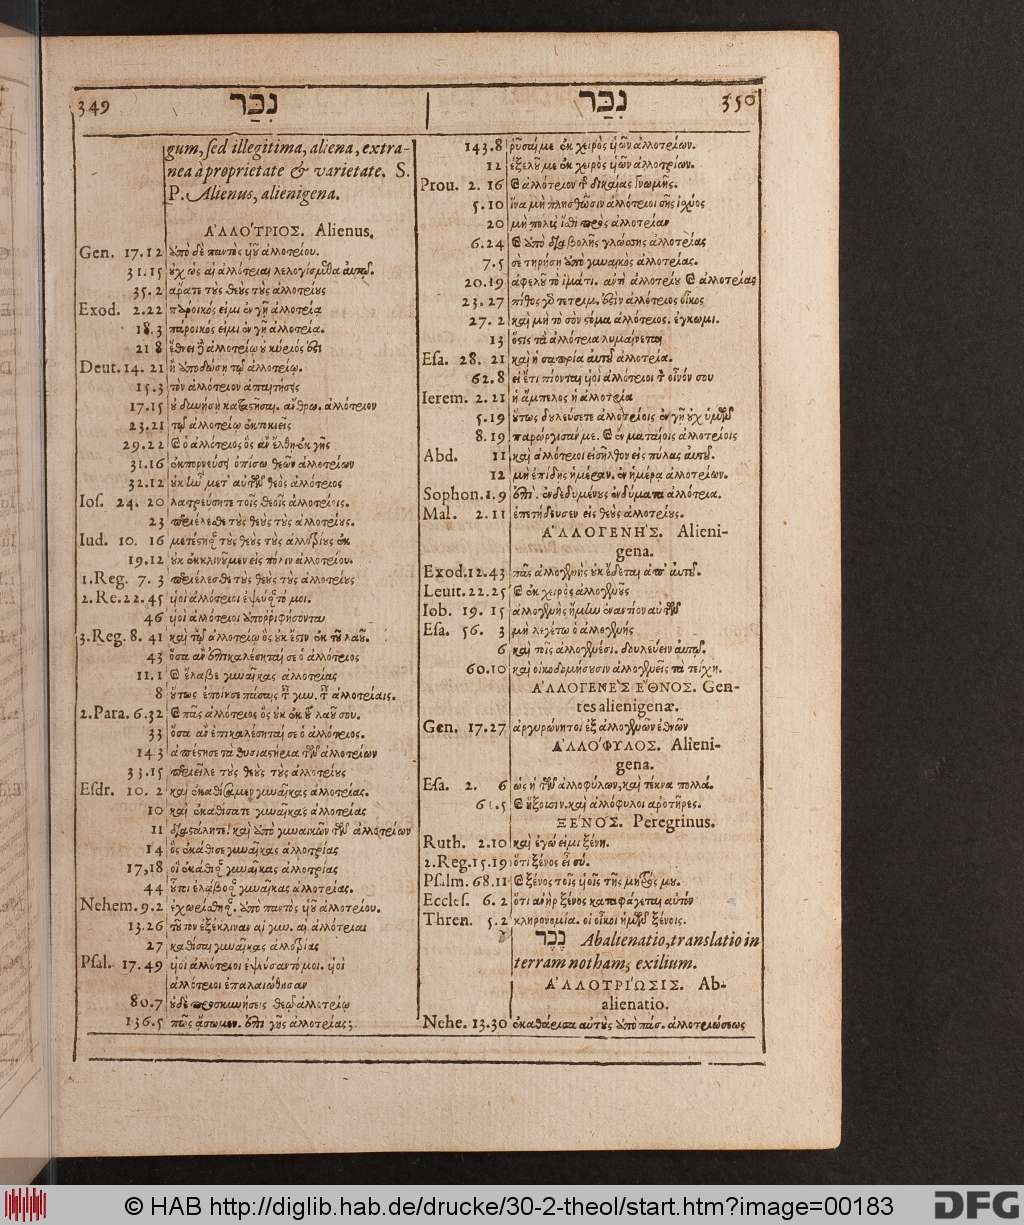 349 נִכַּר
gum, sed illegitima, aliena, extra-
nea à proprietate & varietate. S.
P. Alienus, alienigena.
ἈΛΛΟ´ΤΡΙΟΣ. Alienus.
Gen. 17.12 ὑπὸ δὲ παντὸς ἀλλοτρίου.
31.15 οὐχ ὡς αἱ ἀλλότριαι λελογίσμεθα αὐτῷ.
35.2 ἄρατε τοὺς θεοὺς τοὺς ἀλλοτρίους
Exod. 2.22 πάροικός εἰμι ἐν γῇ ἀλλοτρίᾳ
18.3 πάροικός εἰμι ἐν γῇ ἀλλοτρίᾳ.
21 8 ἔθνει ἀλλοτρίῳ οὐ κύριός ἐστι
Deut. 14. 21 ἢ ἀποδώσῃ τῷ ἀλλοτρίῳ.
15.3 τὸν ἀλλότριον ἀπαιτήσεις
17.15 οὐ δυνήσῃ καταστῆσαι. ἄνθρω. ἀλλότριον
23.21 τῷ ἀλλοτρίῳ ἐκτοκιεῖς
29.22 καὶ ὁ ἀλλότριος ὃς ἂν ἔλθῃ ἐκ γῆς
31.16 ἐκπορνεύσει ὀπίσω θεῶν ἀλλοτρίων
32.12 οὐκ ἦν μετ' αὐτῶν θεὸς ἀλλότριος
Ios. 24. 20 λατρεύσητε τοῖς θεοῖς ἀλλοτρίοις.
23 περιέλεσθε τοὺς θεοὺς τοὺς ἀλλοτρίους.
Iud. 10. 16 τοὺς θεοὺς τοὺς ἀλλοτρίους ἐκ
19.12 οὐκ ἐκκλινοῦμεν εἰς πόλιν ἀλλοτρίου.
1.Reg. 7. 3 περιέλεσθε τοὺς θεοὺς τοὺς ἀλλοτρίους
2.Re. 22.45 υἱοὶ ἀλλότριοι ἐψεύσαντό μοι.
46 υἱοὶ ἀλλότριοι ἀπορριφήσονται
3.Reg. 8. 41 καὶ τῷ ἀλλοτρίῳ ὃς οὐκ ἔστιν ἐκ τοῦ λαοῦ.
43 ὅσα ἂν ἐπικαλέσηταί σε ὁ ἀλλότριος
11.1 καὶ ἔλαβε γυναῖκας ἀλλοτρίας
8 οὕτως ἐποίησε πάσαις ταῖς γυν. ταῖς ἀλλοτρίαις.
2.Para. 6.32 καὶ πᾶς ἀλλότριος ὃς οὐκ ἐκ τοῦ λαοῦ σου.
33 ὅσα ἂν ἐπικαλέσηταί σε ὁ ἀλλότριος.
14 3 ἀπέστησε τὰ θυσιαστήρια τῶν ἀλλοτρίων
33.15 περιεῖλε τοὺς θεοὺς τοὺς ἀλλοτρίους
Esdr. 10. 2 καὶ ἐκαθίσαμεν γυναῖκας ἀλλοτρίας.
10 καὶ ἐκαθίσατε γυναῖκας ἀλλοτρίας
11 διαστάλητε καὶ ἀπὸ γυναικῶν τῶν ἀλλοτρίων
14 ὃς ἐκάθισε γυναῖκας ἀλλοτρίας
17,18 οἳ ἐκάθισαν γυναῖκας ἀλλοτρίας
44 ἐλάβοσαν γυναῖκας ἀλλοτρίας.
Nehem. 9.2 ἐχωρίσθησαν. ἀπὸ παντὸς υἱοῦ ἀλλοτρίου.
13.26 τοῦτον ἐξέκλιναν αἱ γυν. αἱ ἀλλότριαι
27 καθίσαι γυναῖκας ἀλλοτρίας
Psal. 17.49 υἱοὶ ἀλλότριοι ἐψεύσαντό μοι. υἱοὶ
ἀλλότριοι ἐπαλαιώθησαν
80.7 οὐδὲ προσκυνήσεις θεῷ ἀλλοτρίῳ
136.5 πῶς ᾄσωμεν. ἐπὶ γῆς ἀλλοτρίας;
נִכַּר 350
143.8 ῥῦσαί με ἐκ χειρὸς υἱῶν ἀλλοτρίων.
12 ἐξελοῦ με ἐκ χειρὸς υἱῶν ἀλλοτρίων.
Prou. 2. 16 καὶ ἀλλότριον τῆς δικαίας γνώμης.
5.10 ἵνα μὴ πλησθῶσιν ἀλλότριοι σῆς ἰσχύος
20 μὴ πολὺς ἴσθι πρὸς ἀλλοτρίαν
6.24 καὶ ἀπὸ διαβολῆς γλώσσης ἀλλοτρίας
7.5 σε τηρήσῃ ἀπὸ γυναικὸς ἀλλοτρίας.
20.19 ἀφελοῦ τὸ ἱμάτι. ἀλλοτρίου καὶ ἀλλοτρίας
23. 27 πίθος γὰρ τετριμ. ἐστὶν ἀλλότριος οἶκος
27. 2 καὶ μὴ τὸ σὸν στόμα ἀλλότριος. ἐγκωμι.
13 ὅστις τὰ ἀλλότρια λυμαίνεται
Esa. 28. 21 καὶ ἡ σαπρία αὐτοῦ ἀλλοτρία.
62.8 εἰ ἔτι πίονται υἱοὶ ἀλλότριοι τὸν οἶνόν σου
Ierem. 2.21 ἡ ἄμπελος ἡ ἀλλοτρία
5.19 οὕτως δουλεύσετε ἀλλοτρίοις ἐν γῇ οὐχ ὑμῶν
8.19 παρώργισάν με. καὶ ἐν ματαίοις ἀλλοτρίοις
Abd. 11 καὶ ἀλλότριοι εἰσῆλθον εἰς πύλας αὐτοῦ.
12 μὴ ἐπίδῃς ἡμέραν. ἐν ἡμέρᾳ ἀλλοτρίων.
Sophon. 1.9 ἐπὶ. ἐνδεδυμένους ἐνδύματα ἀλλότρια.
Mal. 2.11 ἐπετήδευσεν εἰς θεοὺς ἀλλοτρίους.
ἈΛΛΟΓΕΝΗ´Σ. Alieni-
gena.
Exod. 12.43 πᾶς ἀλλογενὴς οὐκ ἔδεται ἀπ' αὐτοῦ.
Leuit. 22.25 καὶ ἐκ χειρὸς ἀλλογενοῦς
Iob. 19. 15 ἀλλογενὴς ἤμην ἐναντίον αὐτῶν
Esa. 56. 3 μὴ λεγέτω ὁ ἀλλογενής
6 καὶ τοῖς ἀλλογενέσι. δουλεύειν αὐτῷ.
60.10 καὶ οἰκοδομήσουσιν ἀλλογενεῖς τὰ τείχη.
ἈΛΛΟΓΕΝΕ´Σ Ε´ΘΝΟΣ. Gen-
tes alienigenæ.
Gen. 17.27 ἀργυρώνητοι ἐξ ἀλλογενῶν ἐθνῶν
ἈΛΛΟ´ΦΥΛΟΣ. Alieni-
gena.
Esa. 2. 6 ὡς ἡ τῶν ἀλλοφύλων, καὶ τέκνα πολλά.
61.5 καὶ ἥξουσιν. καὶ ἀλλόφυλοι ἀροτῆρες.
ΞΕ´ΝΟΣ. Peregrinus.
Ruth. 2.10 καὶ ἐγώ εἰμι ξένη.
2.Reg. 15.19 ὅτι ξένος εἶ σύ.
Psalm. 68.11 καὶ ξένος τοῖς υἱοῖς τῆς μητρός μου.
Eccles. 6. 2 ὅτι ἀνὴρ ξένος καταφάγεται αὐτόν
Thren. 5.2 κληρονομία. οἱ οἶκοι ἡμῶν ξένοις.
נֵכֶר Abalienatio, translatio in
terram notham, exilium.
ἈΛΛΟΤΡΙ´ΩΣΙΣ. Ab-
alienatio.
Nehe. 13.30 ἐκαθάρισα αὐτοὺς ἀπὸ πάσ. ἀλλοτριώσεως
© HAB http://diglib.hab.de/drucke/30-2-theol/start.htm?image=00183
DFG